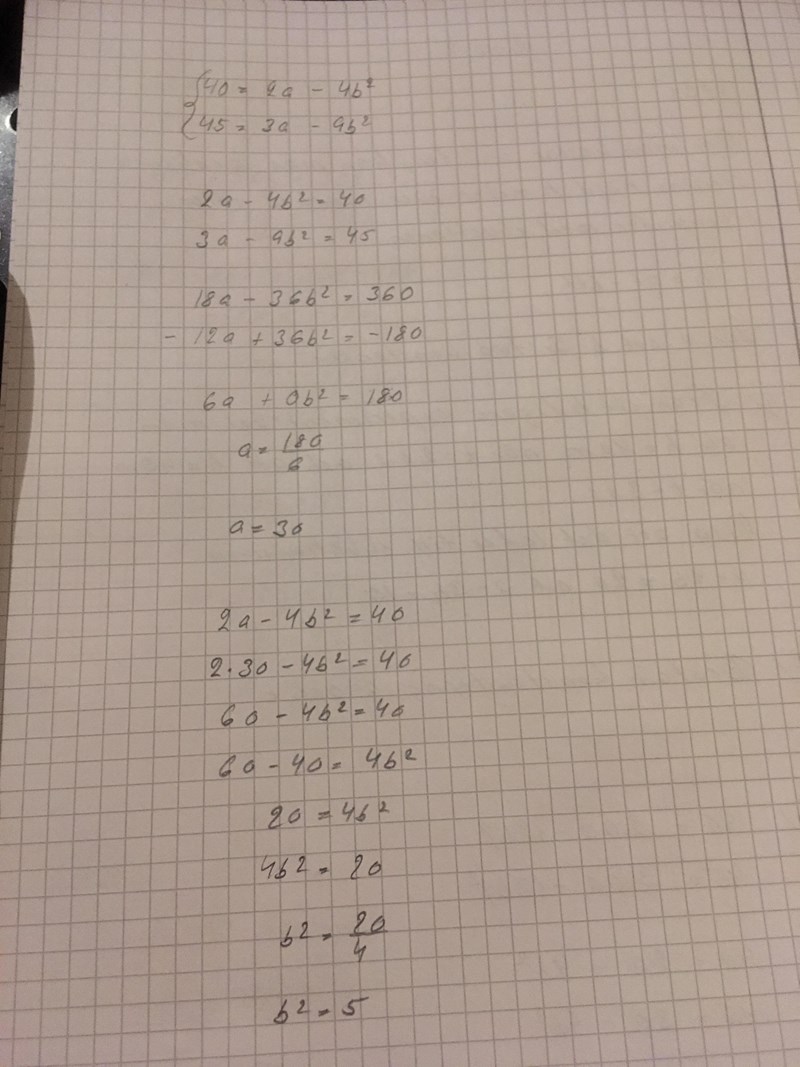 40 = 2a - 4b²
45 = 3a - 9b²
2a - 4b² = 40
3a - 9b² = 45
18a - 36b² = 360
- 12a + 36b² = -180
6a + 0b² = 180
a = 180/6
a = 30
2a - 4b² = 40
2·30 - 4b² = 40
60 - 4b² = 40
60 - 40 = 4b²
20 = 4b²
4b² = 20
b² = 20/4
b² = 5